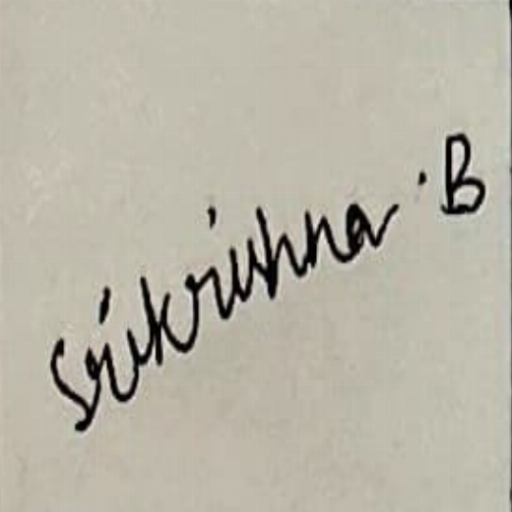 Srikrishna . B